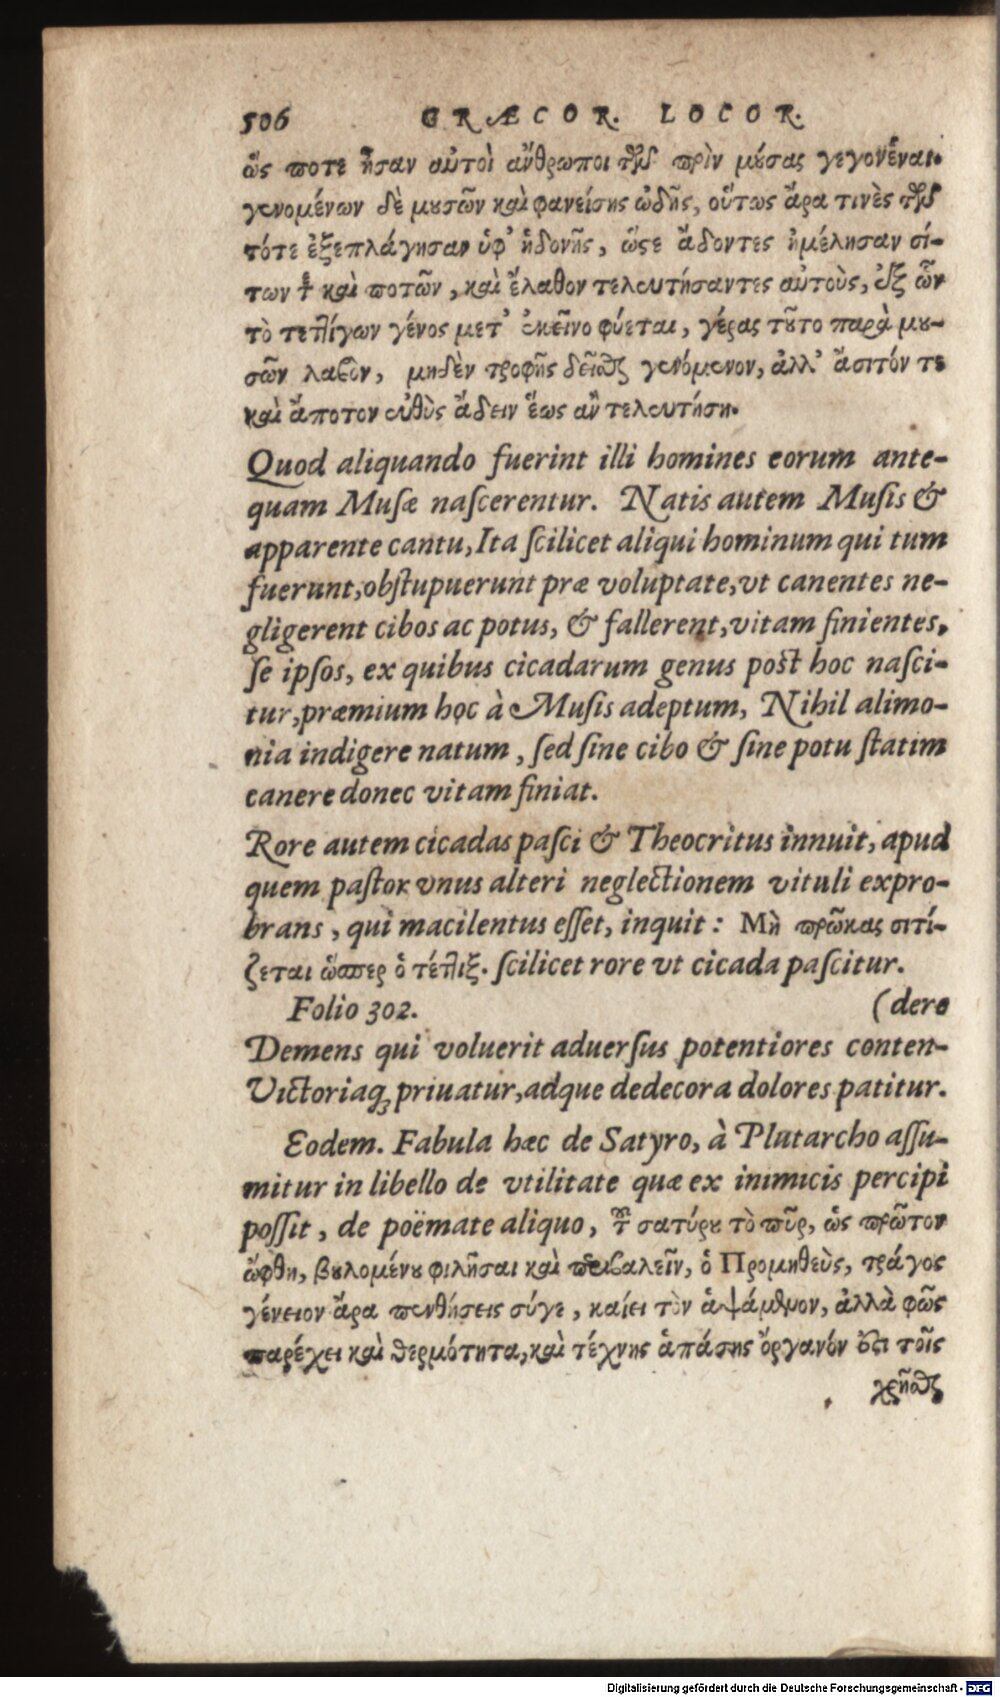 506 GRÆCOR. LOCOR.
ὥς ποτε ἦσαν αὐτοὶ ἄνθρωποι τῶν πρὶν μούσας γεγονέναι.
γενομένων δὲ μουσῶν καὶ φανείσης ᾠδῆς, οὕτως ἄρα τινὲς τῶν
τότε ἐξεπλάγησαν ὑφ' ἡδονῆς, ὥστε ἄδοντες ἠμέλησαν σί-
των τε καὶ ποτῶν, καὶ ἔλαθον τελευτήσαντες αὐτοὺς, ἐξ ὧν
τὸ τεττίγων γένος μετ' ἐκεῖνο φύεται, γέρας τοῦτο παρὰ μου-
σῶν λαβὸν, μηδὲν τροφῆς δεῖσθαι γενόμενον, ἀλλ' ἄσιτόν τε
καὶ ἄποτον εὐθὺς ἄδειν ἕως ἂν τελευτήσῃ.
Quod aliquando fuerint illi homines eorum ante-
quam Musæ naſcerentur. Natis autem Muſis &
apparente cantu, Ita ſcilicet aliqui hominum qui tum
fuerunt, obſtupuerunt præ voluptate, vt canentes ne-
gligerent cibos ac potus, & fallerent, vitam finientes,
ſe ipſos, ex quibus cicadarum genus poſt hoc naſci-
tur, præmium hoc à Muſis adeptum, Nihil alimo-
nia indigere natum, ſed ſine cibo & ſine potu ſtatim
canere donec vitam finiat.
Rore autem cicadas paſci & Theocritus innuit, apud
quem paſtor vnus alteri neglectionem vituli expro-
brans, qui macilentus eſſet, inquit: Μὴ πρῶκας σιτί-
ζεται ὥσπερ ὁ τέττιξ. ſcilicet rore vt cicada paſcitur.
Folio 302. (dere
Demens qui voluerit aduerſus potentiores conten-
Victoriaq; priuatur, adque dedecora dolores patitur.
Eodem. Fabula hæc de Satyro, à Plutarcho aſſu-
mitur in libello de vtilitate quæ ex inimicis percipi
poſſit, de poëmate aliquo, τοῦ σατύρου τὸ πῦρ, ὡς πρῶτον
ὤφθη, βουλομένου φιλῆσαι καὶ περιβαλεῖν, ὁ Προμηθεὺς, τράγος
γένειον ἄρα πενθήσεις σύγε, καίει τὸν ἁψάμενον, ἀλλὰ φῶς
παρέχει καὶ θερμότητα, καὶ τέχνης ἁπάσης ὄργανόν ἐστι τοῖς
χρῆσθαι
Digitalisierung gefördert durch die Deutsche Forschungsgemeinschaft - DFG